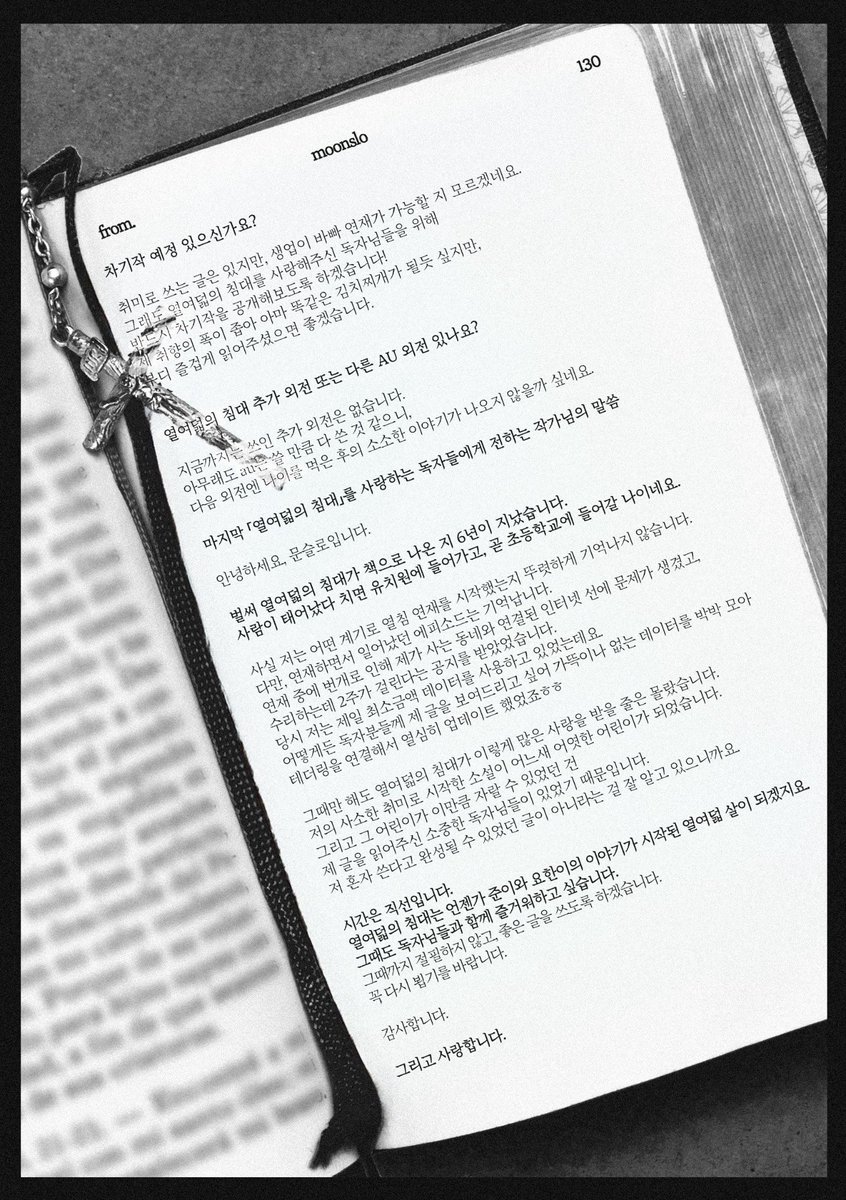 130
moonslo
from.
차기작 예정 있으신가요?
취미로 쓰는 글은 있지만, 생업이 바빠 연재가 가능할 지 모르겠네요.
그래도 열여덟의 침대를 사랑해주신 독자님들을 위해
반드시 차기작을 공개해보도록 하겠습니다!
제 취향의 폭이 좁아 아마 똑같은 김치찌개가 될듯 싶지만,
부디 즐겁게 읽어주셨으면 좋겠습니다.
열여덟의 침대 추가 외전 또는 다른 AU 외전 있나요?
지금까지는 쓰인 추가 외전은 없습니다.
아무래도 au는 쓸 만큼 다 쓴 것 같으니,
다음 외전엔 나이를 먹은 후의 소소한 이야기가 나오지 않을까 싶네요.
마지막 「열여덟의 침대」를 사랑하는 독자들에게 전하는 작가님의 말씀
안녕하세요, 문슬로입니다.
벌써 열여덟의 침대가 책으로 나온 지 6년이 지났습니다.
사람이 태어났다 치면 유치원에 들어가고, 곧 초등학교에 들어갈 나이네요.
사실 저는 어떤 계기로 열침 연재를 시작했는지 뚜렷하게 기억나지 않습니다.
다만, 연재하면서 일어났던 에피소드는 기억납니다.
연재 중에 번개로 인해 제가 사는 동네와 연결된 인터넷 선에 문제가 생겼고,
수리하는데 2주가 걸린다는 공지를 받았었습니다.
당시 저는 제일 최소금액 데이터를 사용하고 있었는데요.
어떻게든 독자분들께 제 글을 보여드리고 싶어 가뜩이나 없는 데이터를 박박 모아
테더링을 연결해서 열심히 업데이트 했었죠ㅎㅎ
그때만 해도 열여덟의 침대가 이렇게 많은 사랑을 받을 줄은 몰랐습니다.
저의 사소한 취미로 시작한 소설이 어느새 어엿한 어린이가 되었습니다.
그리고 그 어린이가 이만큼 자랄 수 있었던 건
제 글을 읽어주신 소중한 독자님들이 있었기 때문입니다.
저 혼자 쓴다고 완성될 수 있었던 글이 아니라는 걸 잘 알고 있으니까요.
시간은 직선입니다.
열여덟의 침대는 언젠가 준이와 요한이의 이야기가 시작된 열여덟 살이 되겠지요.
그때도 독자님들과 함께 즐거워하고 싶습니다.
그때까지 절필하지 않고, 좋은 글을 쓰도록 하겠습니다.
꼭 다시 뵙기를 바랍니다.
감사합니다.
그리고 사랑합니다.